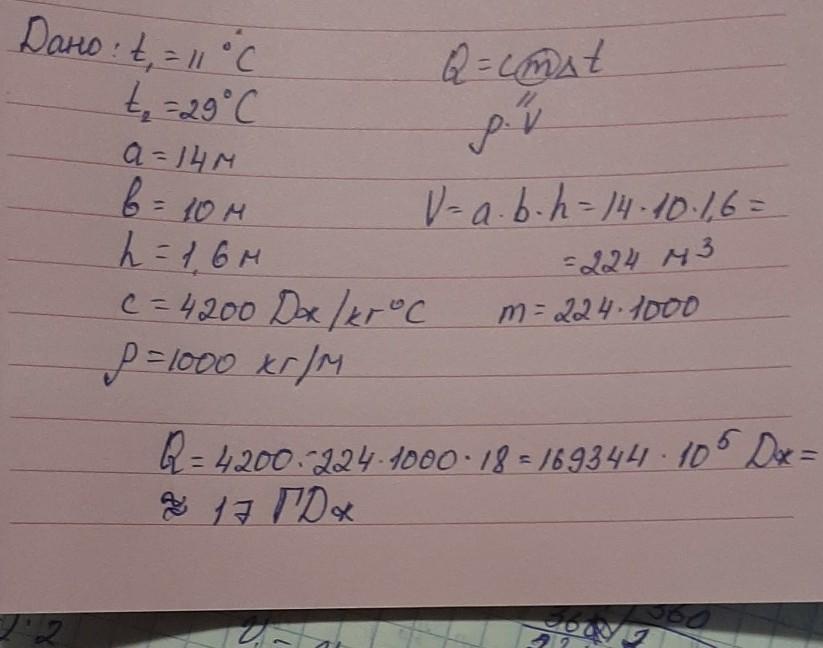 Дано: t₁ = 11 °C
t₂ = 29°C
a = 14 м
b = 10 м
h = 1,6 м
c = 4200 Дж/кг°C
ρ = 1000 кг/м
Q = cmΔt
"
ρ·V
V = a·b·h = 14·10·1,6 =
= 224 м³
m = 224·1000
Q = 4200·224·1000·18 = 169344·10⁵ Дж =
≈ 17 ГДж
:2
360
360
2